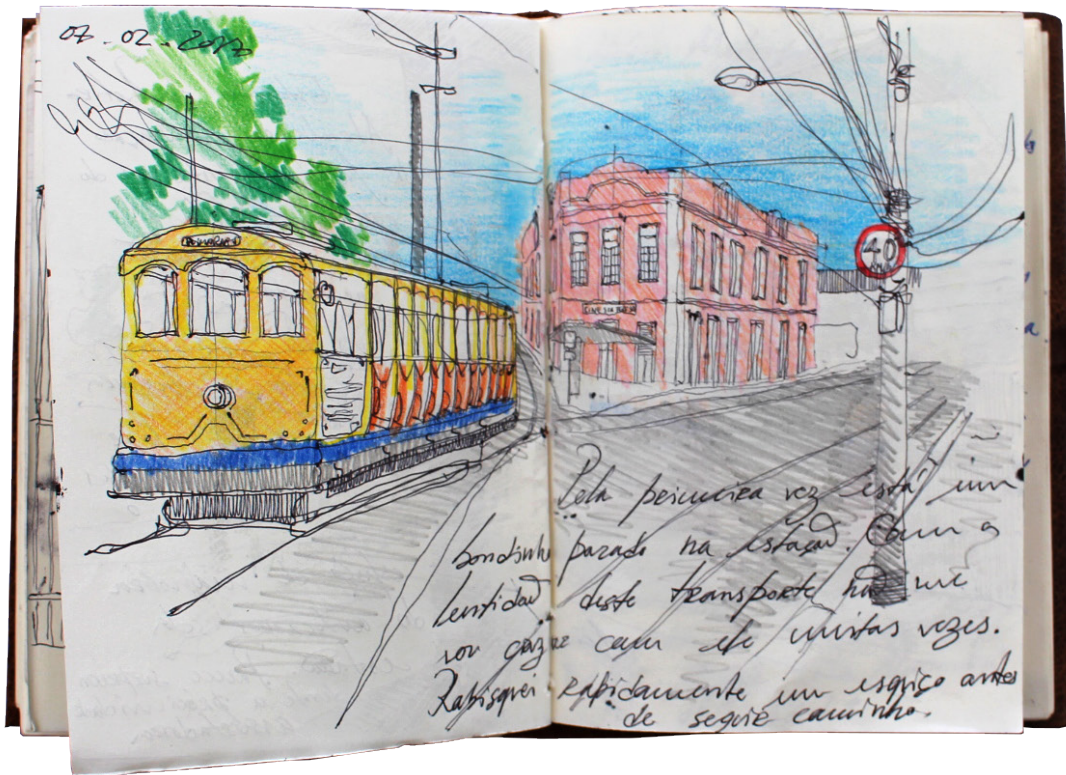 07.02.2017
40
Pela primeira vez está um
bondinho parado na estação. Com a
lentidão deste transporte não me
vou cruzar com ele muitas vezes.
Rabisquei rapidamente um esquiço antes
de seguir caminho.